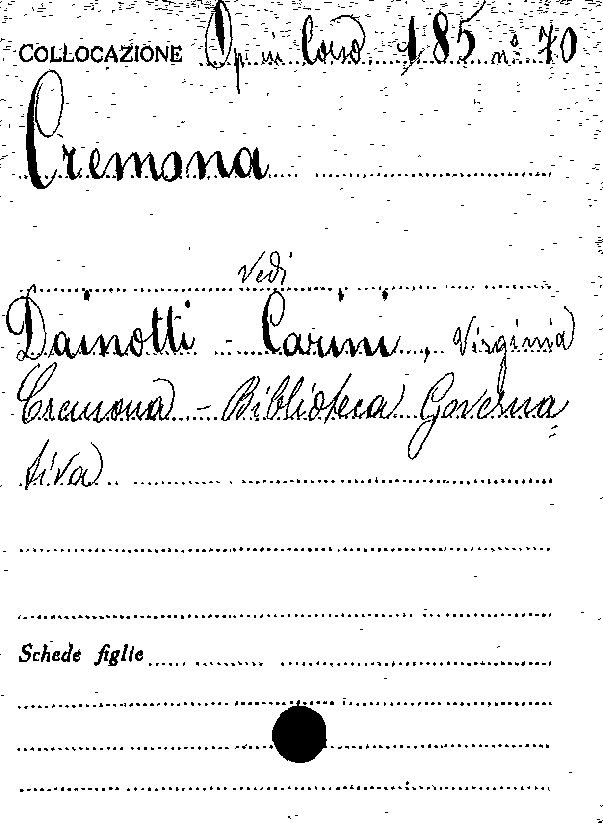 COLLOCAZIONE Op in Corso 185 n° 70
Cremona
Vedi
Dainotti - Carini, Virginia
Cremona - Biblioteca Governa=
tiva
Schede figlie